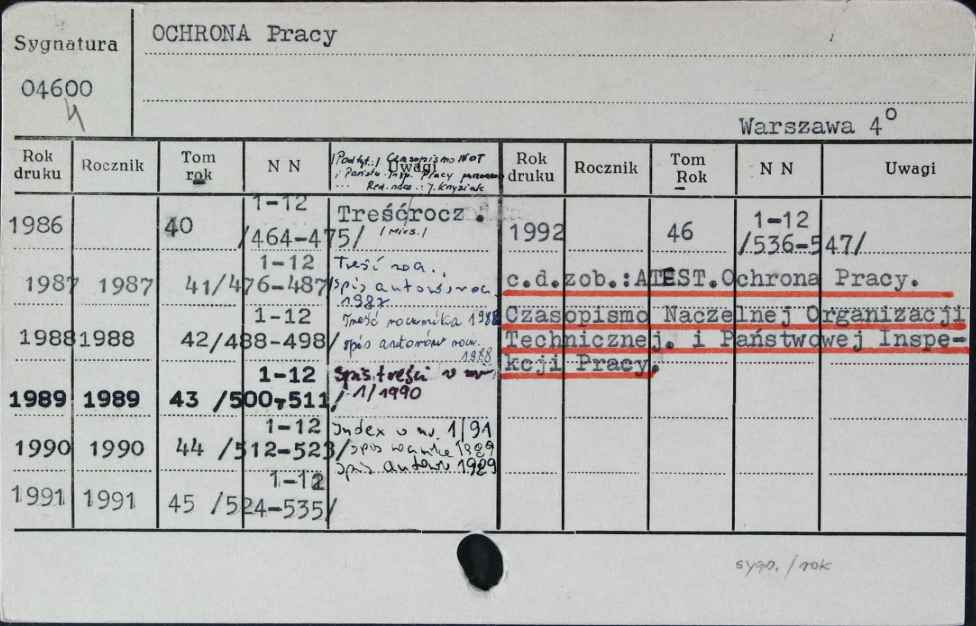 Sygnatura
OCHRONA Pracy
04600
4
Warszawa 4°
Rok druku Rocznik Tom rok N N Uwagi Rok druku Rocznik Tom Rok N N Uwagi
Czasopismo NOT
i Państw. Insp. Pracy
Red. nacz.: J. Knyziak
1986 40 1-12 /464-475/ Treśćrocz. /mies./ 1992 46 1-12 /536-547/
1987 1987 41/476-487/ 1-12 Treść rocz.
spis autorów rocz. 1987
c.d.zob.:ATEST.Ochrona Pracy.
Czasopismo Naczelnej Organizacji
Technicznej. i Państwowej Inspe-
kcji Pracy.
1988 1988 42/488-498/ 1-12 Treść rocznika 1988
spis autorów rocz. 1988
1989 1989 43 /500-511/ 1-12 Spis treści w nr
1/1990
1990 1990 44 /512-523/ 1-12 Index w nr. 1/91
spis autorów 1989
1991 1991 45 /524-535/ 1-12
sygn. / rok